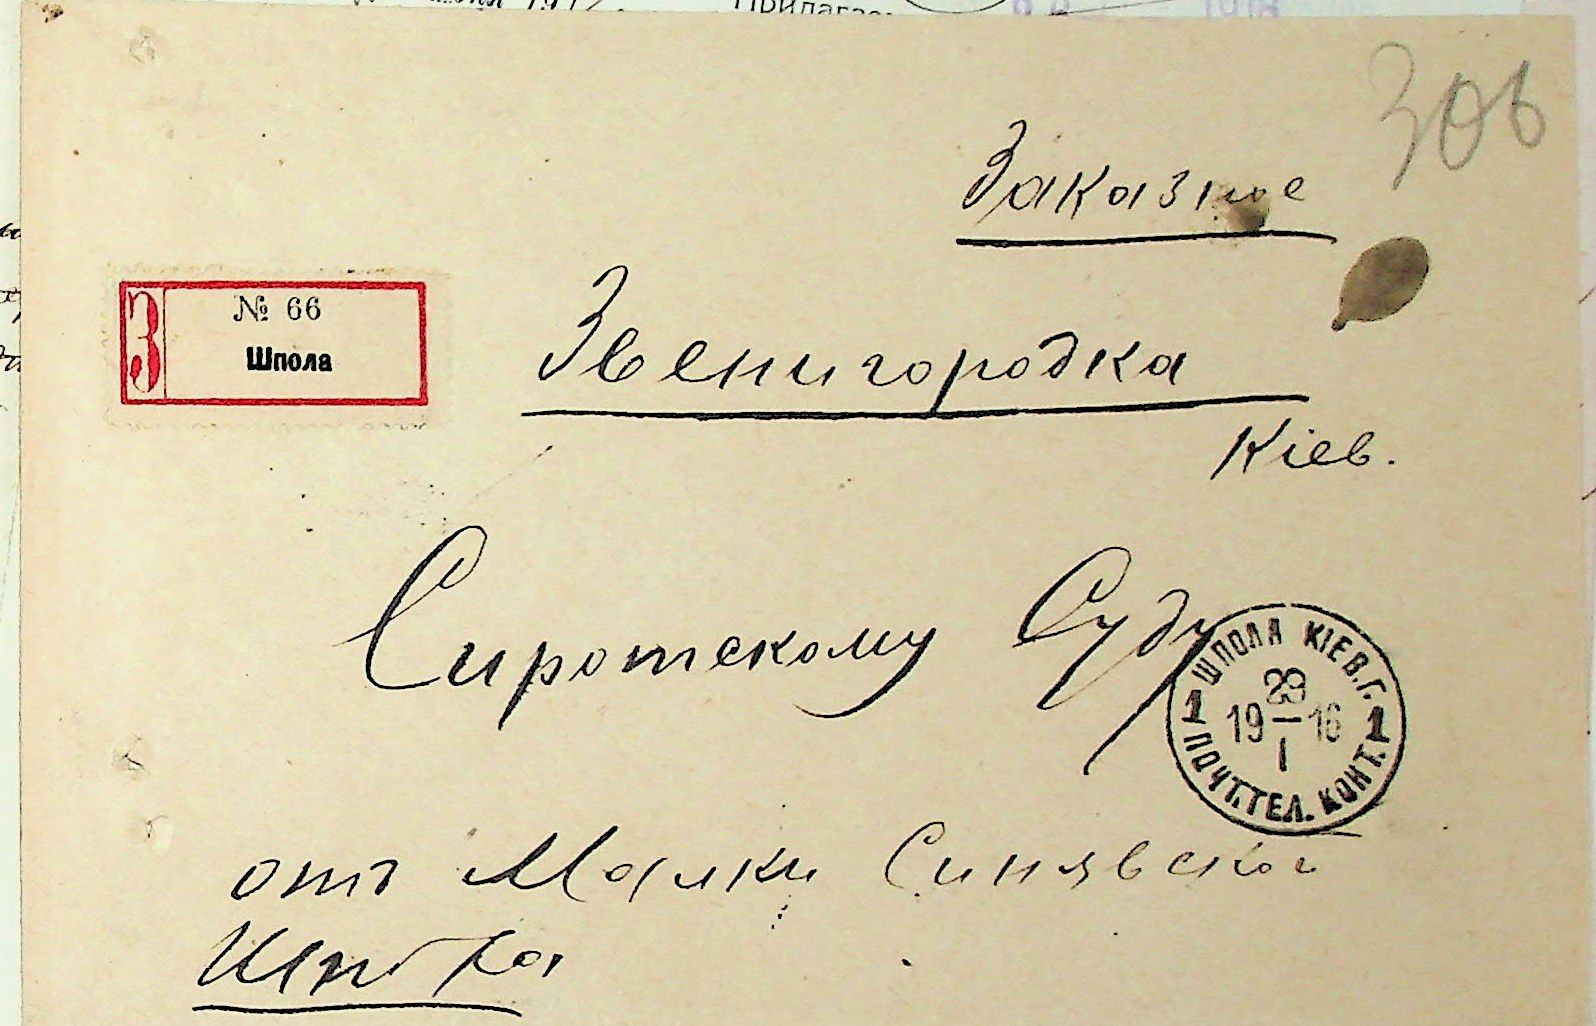 Прилагае
306
Заказное
З
№ 66
Шпола
Звенигородка
Кіев.
Сиротскому Суду
ШПОЛА КІЕВ.Г.
1 1
19 16
I
ПОЧТ.ТЕЛ. КОНТ.
отъ Малки Синявской
Шпола